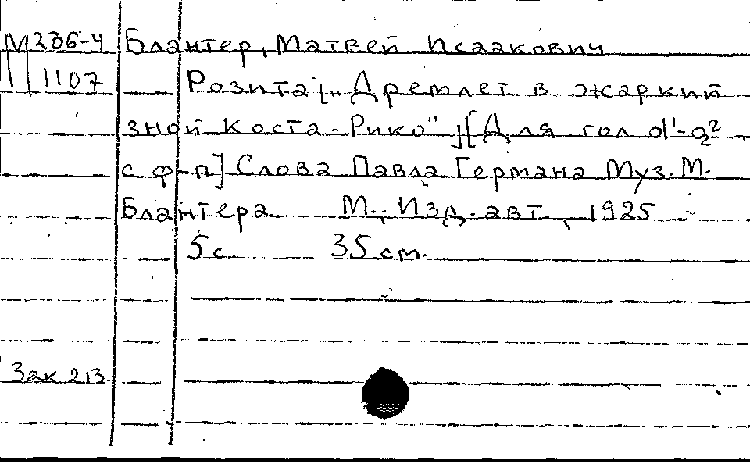 М 286-4 Блантер, Матвей Исаакович
1107 Розита [„Дремлет в жаркий
зной Коста-Рико"] [Для гол. d¹-g²
с ф-п] Слова Павла Германа Муз. М.
Блантера М., Изд. авт., 1925
5 с. 35 см.
Зак 213